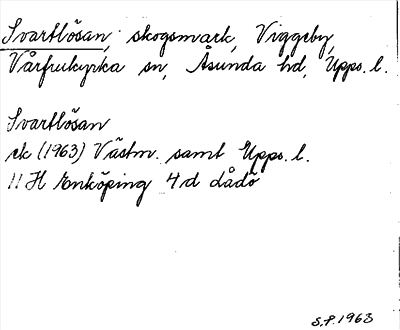 Svartlösan, skogsmark, Viggeby,
Vårfrukyrka sn, Åsunda hd, Upps. l.
Svartlösan
ek (1963) Västm. samt Upps. l.
11 H Enköping 4d dådö
S.P. 1963